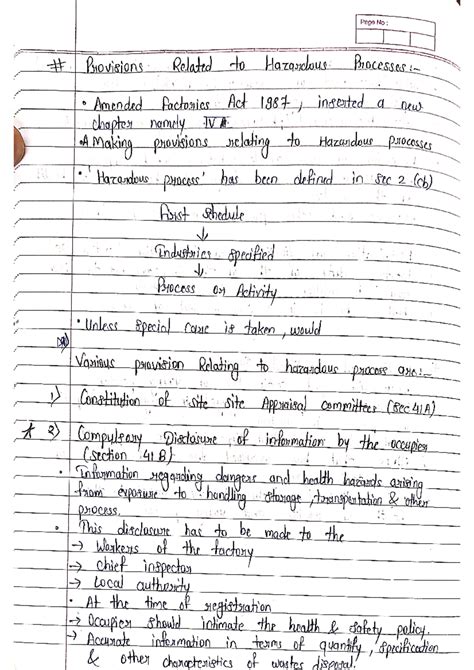 Page No :
# Provisions Related to Hazardous Processes:-
• Amended Factories Act 1987, inserted a new
chapter namely IV A
• A Making provisions relating to Hazardous processes
• 'Hazardous process' has been defined in sec 2 (cb)
First schedule
↓
Industries specified
↓
Process or Activity
• Unless special care is taken, would
Various provision Relating to hazardous process are:-
1) Constitution of site site Appraisal committees (sec 41A)
* 2) Compulsory Disclosure of information by the occupier
(section 41B)
• Information regarding dangers and health hazards arising
from exposure to handling storage, transportation & other
process.
• This disclosure has to be made to the
→ Workers of the factory
→ chief inspector
→ local authority
• At the time of registration
→ Occupier should intimate the health & safety policy.
→ Accurate information in terms of quantity, specification
& other characteristics of wastes disposal.